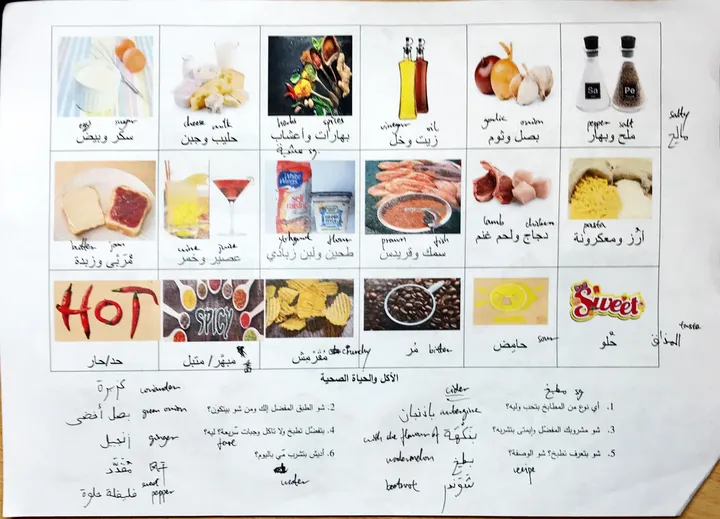 Sa
Pe
eggs sugar
cheese milk
herbs spices
vinegar oil
garlic onion
pepper salt
salty
سكّر وبيض
حليب وجبن
بهارات وأعشاب
زيت وخل
بصل وثوم
ملح وبهار
مالح
sg.
White Wings
self raising
butter jam
wine juice
yoghourt flour
prawn fish
lamb chicken
pasta
مُرَبّى وزبدة
عصير وخمر
طحين ولبن زبادي
سمك وقريدس
دجاج ولحم غنم
أرُز ومعكرونة
HOT
SPICY
Sweet
حد/حار
مبهّر/ متبل
مُقَرْمِش crunchy
مُر bitter
حامِض sour
حلو
taste
المذاق
الأكل والحياة الصحية
1. أي نوع من المطابخ بتحب وليه؟
2. شو الطبق المفضل إلك ومن شو بيتكون؟
3. شو مشروبك المفضل وإيمتى بتشربه؟
4. بتفضّل تطبخ ولا تاكل وجبات سّريعة؟ ليه؟
5. شو بتعرف تطبخ؟ شو الوصفة؟
6. أديش بتشرب مّي باليوم؟
recipe
water
sg مطبخ
cider
كزبرة coriander
بصل أخضر green onion
زنجبيل ginger
مُقَدَّد
فليفلة حلوة pepper
باذنجان aubergine
with the flavor of بنَكْهَة
watermelon بطيخ
beetroot شَوَنْدَر